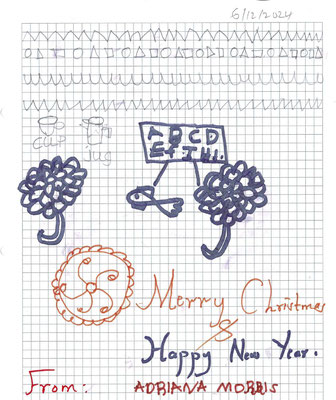 6/12/2024
CUP
Jug
A B C D
Merry Christmas
&
Happy New Year.
From: ADRIANA MORRIS